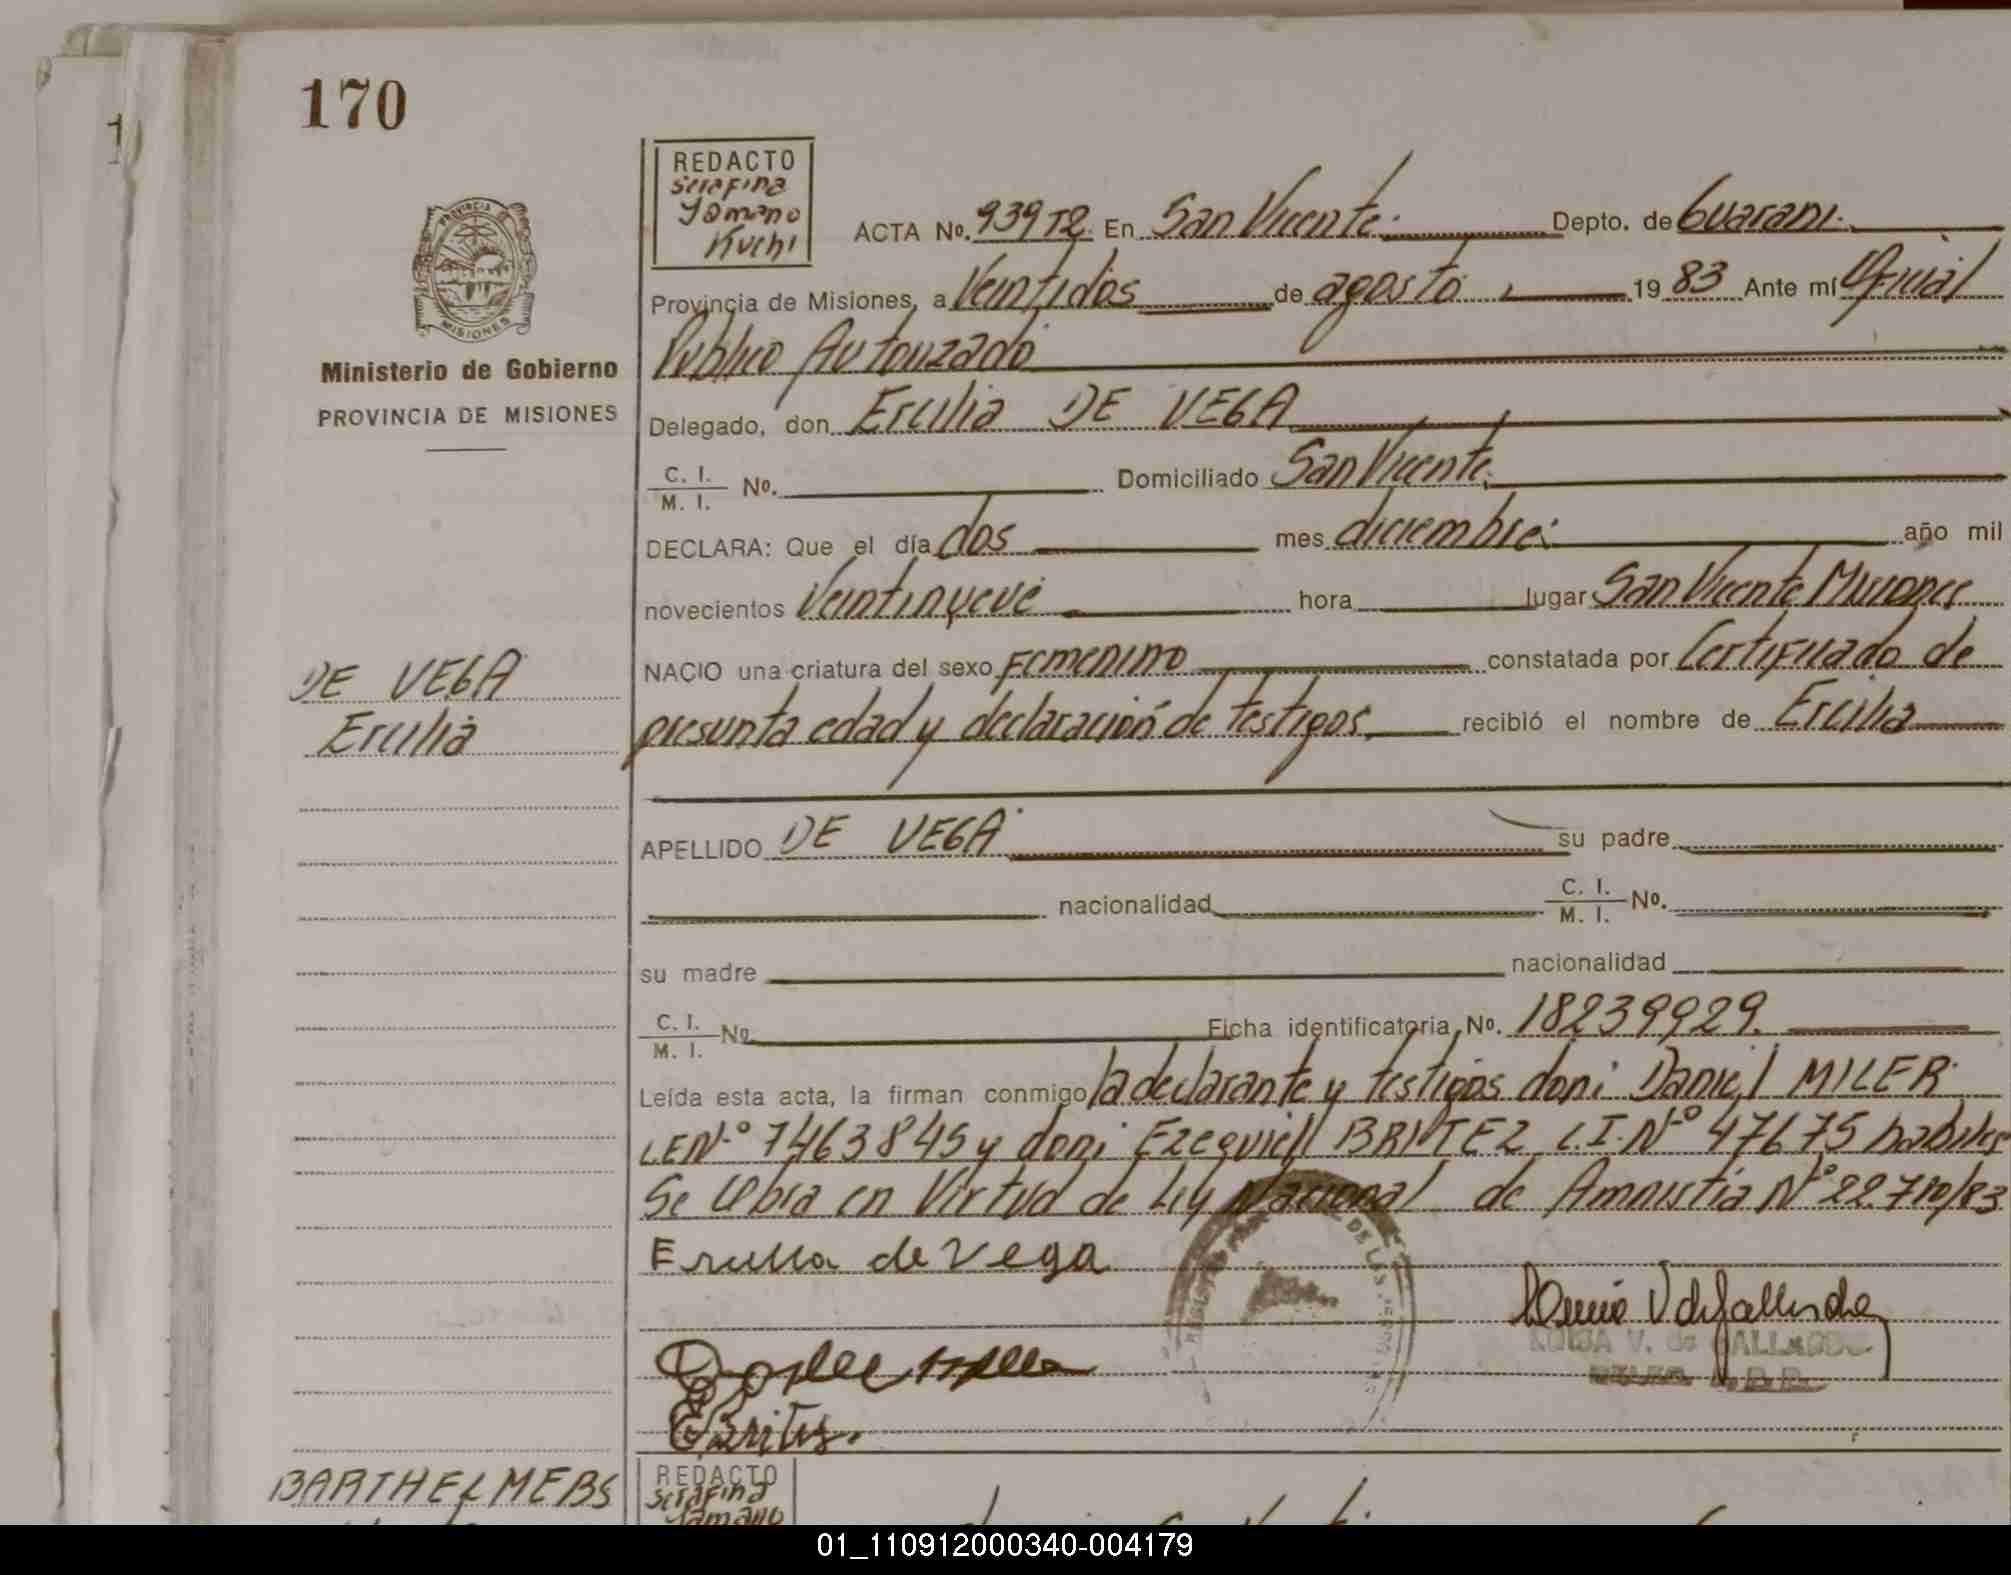 170
REDACTO
Serafina
Jomano
Kuchi
PROVINCIA DE
MISIONES
Ministerio de Gobierno
PROVINCIA DE MISIONES
ACTA No. 939 T2. En San Vicente. Depto. de Guarani.
Provincia de Misiones, a Veintidos de agosto 19 83 Ante mí Oficial
Publico Autorizado
Delegado, don Ercilia DE VEGA
C. I.
M. I. No. Domiciliado San Vicente.
DECLARA: Que el día dos mes diciembre. año mil
novecientos Veintinueve hora lugar San Vicente Misiones
NACIO una criatura del sexo Femenino constatada por Certificado de
presunta edad y declaración de testigos, recibió el nombre de Ercilia
DE VEGA
Ercilia
APELLIDO DE VEGA su padre
nacionalidad C. I.
M. I. No.
su madre nacionalidad
C. I.
M. I. No Ficha identificatoria, No. 18239929.
Leída esta acta, la firman conmigo la declarante y testigos don: Daniel MILER
L.E.Nº 7463845 y don: Ezequiell BRITEZ C.I. Nº 47675 habiles
Se labra en Virtud de Ley Nacional de Amnistía Nº 22.710/83
Ercilia de Vega
DE LAS
LUISA V. de GALLARDO
E Britez.
BARTHELMEBS
REDACTO
Serafina
Jomano
01_110912000340-004179